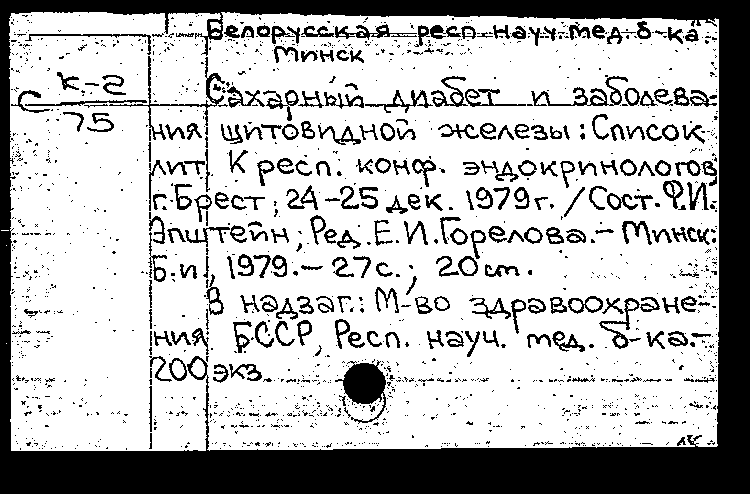 Белорусская респ. науч. мед. б-ка.
Минск
С К-2
75
Сахарный диабет и заболева-
ния щитовидной железы: Список
лит. К респ. конф. эндокринологов,
г. Брест, 24-25 дек. 1979г. / Сост. Ф.И.
Эпштейн; Ред. Е.И. Горелова. - Минск:
Б.и., 1979. - 27с.; 20 см.
В надзаг.: М-во здравоохране-
ния БССР, Респ. науч. мед. б-ка. -
200 экз